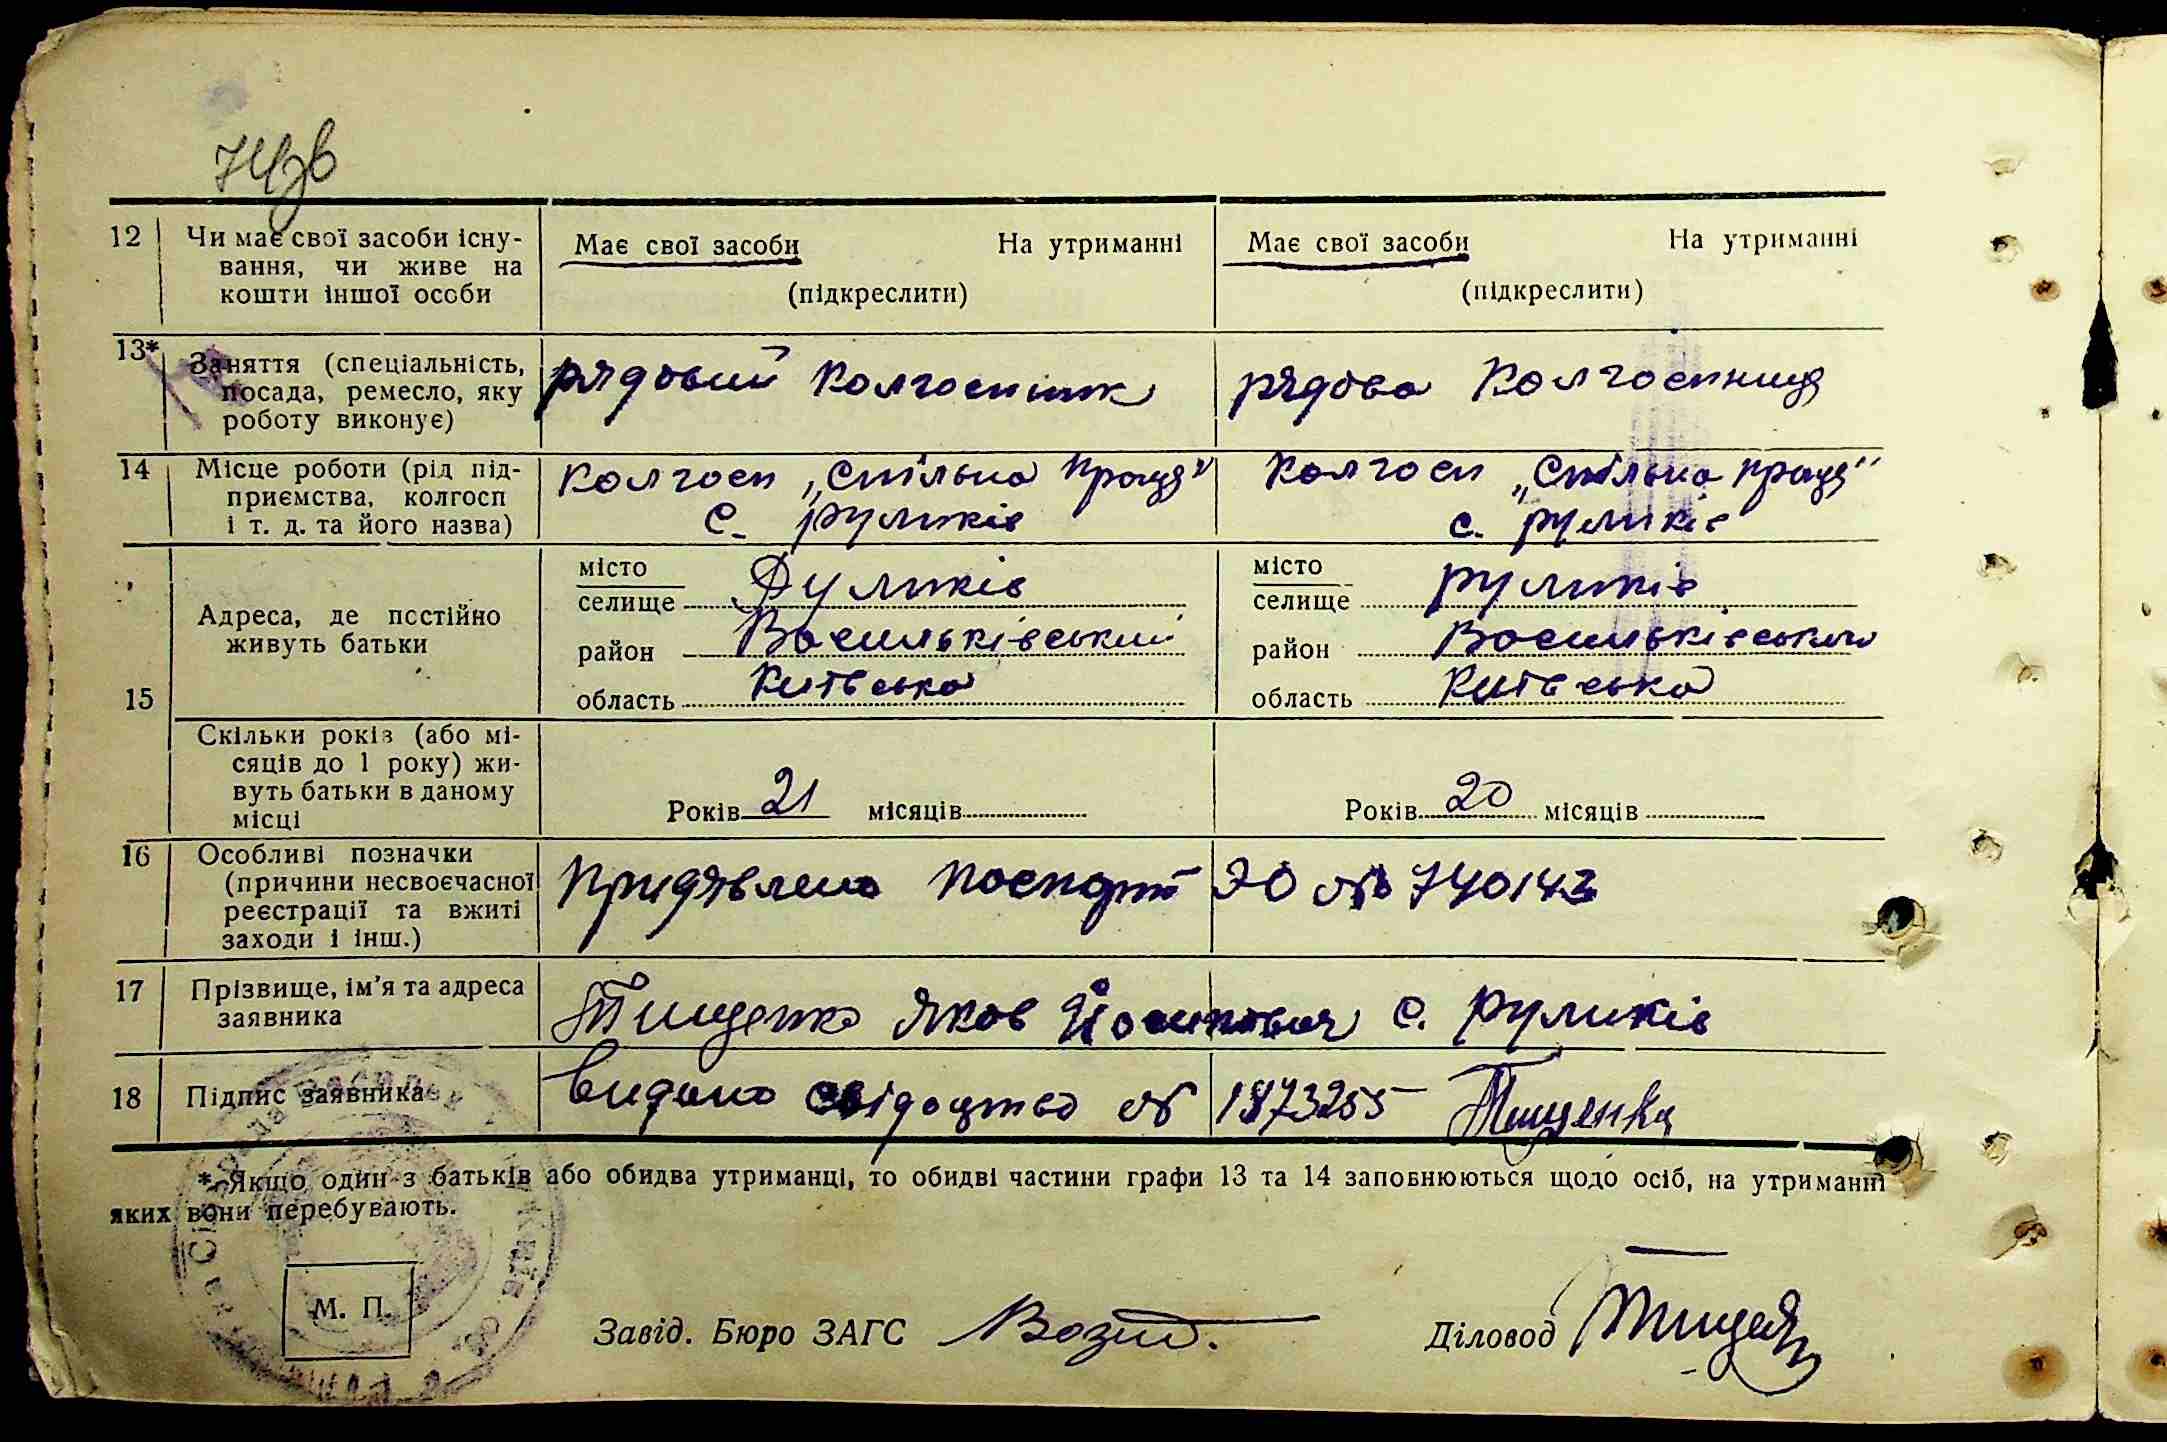 74зв
12 Чи має свої засоби існу- Має свої засоби На утриманні Має свої засоби На утриманні
вання, чи живе на
кошти іншої особи (підкреслити) (підкреслити)
13* Заняття (спеціальність, рядовий колгоспник рядова колгоспниця
посада, ремесло, яку
роботу виконує)
14 Місце роботи (рід під- колгосп „Спільна праця" колгосп „Спільна праця"
приємства, колгосп с. Руликів с. Руликів
і т. д. та його назва)
15 Адреса, де постійно
живуть батьки
місто Руликів місто Руликів
селище селище
район Васильківський район Васильківського
область Київська область Київська
Скільки років (або мі-
сяців до 1 року) жи-
вуть батьки в даному
місці
Років 21 місяців Років 20 місяців
16 Особливі позначки
(причини несвоєчасної Придявлено паспорт ЭО № 740142
реєстрації та вжиті
заходи і інш.)
17 Прізвище, ім'я та адреса Тищенко Яков Йосипович с. Руликів
заявника
18 Підпис заявника видано свідоцтво № 1873255 Тищенко
* Якщо один з батьків або обидва утриманці, то обидві частини графи 13 та 14 заповнюються щодо осіб, на утриманні
яких вони перебувають.
М. П.
Завід. Бюро ЗАГС Діловод